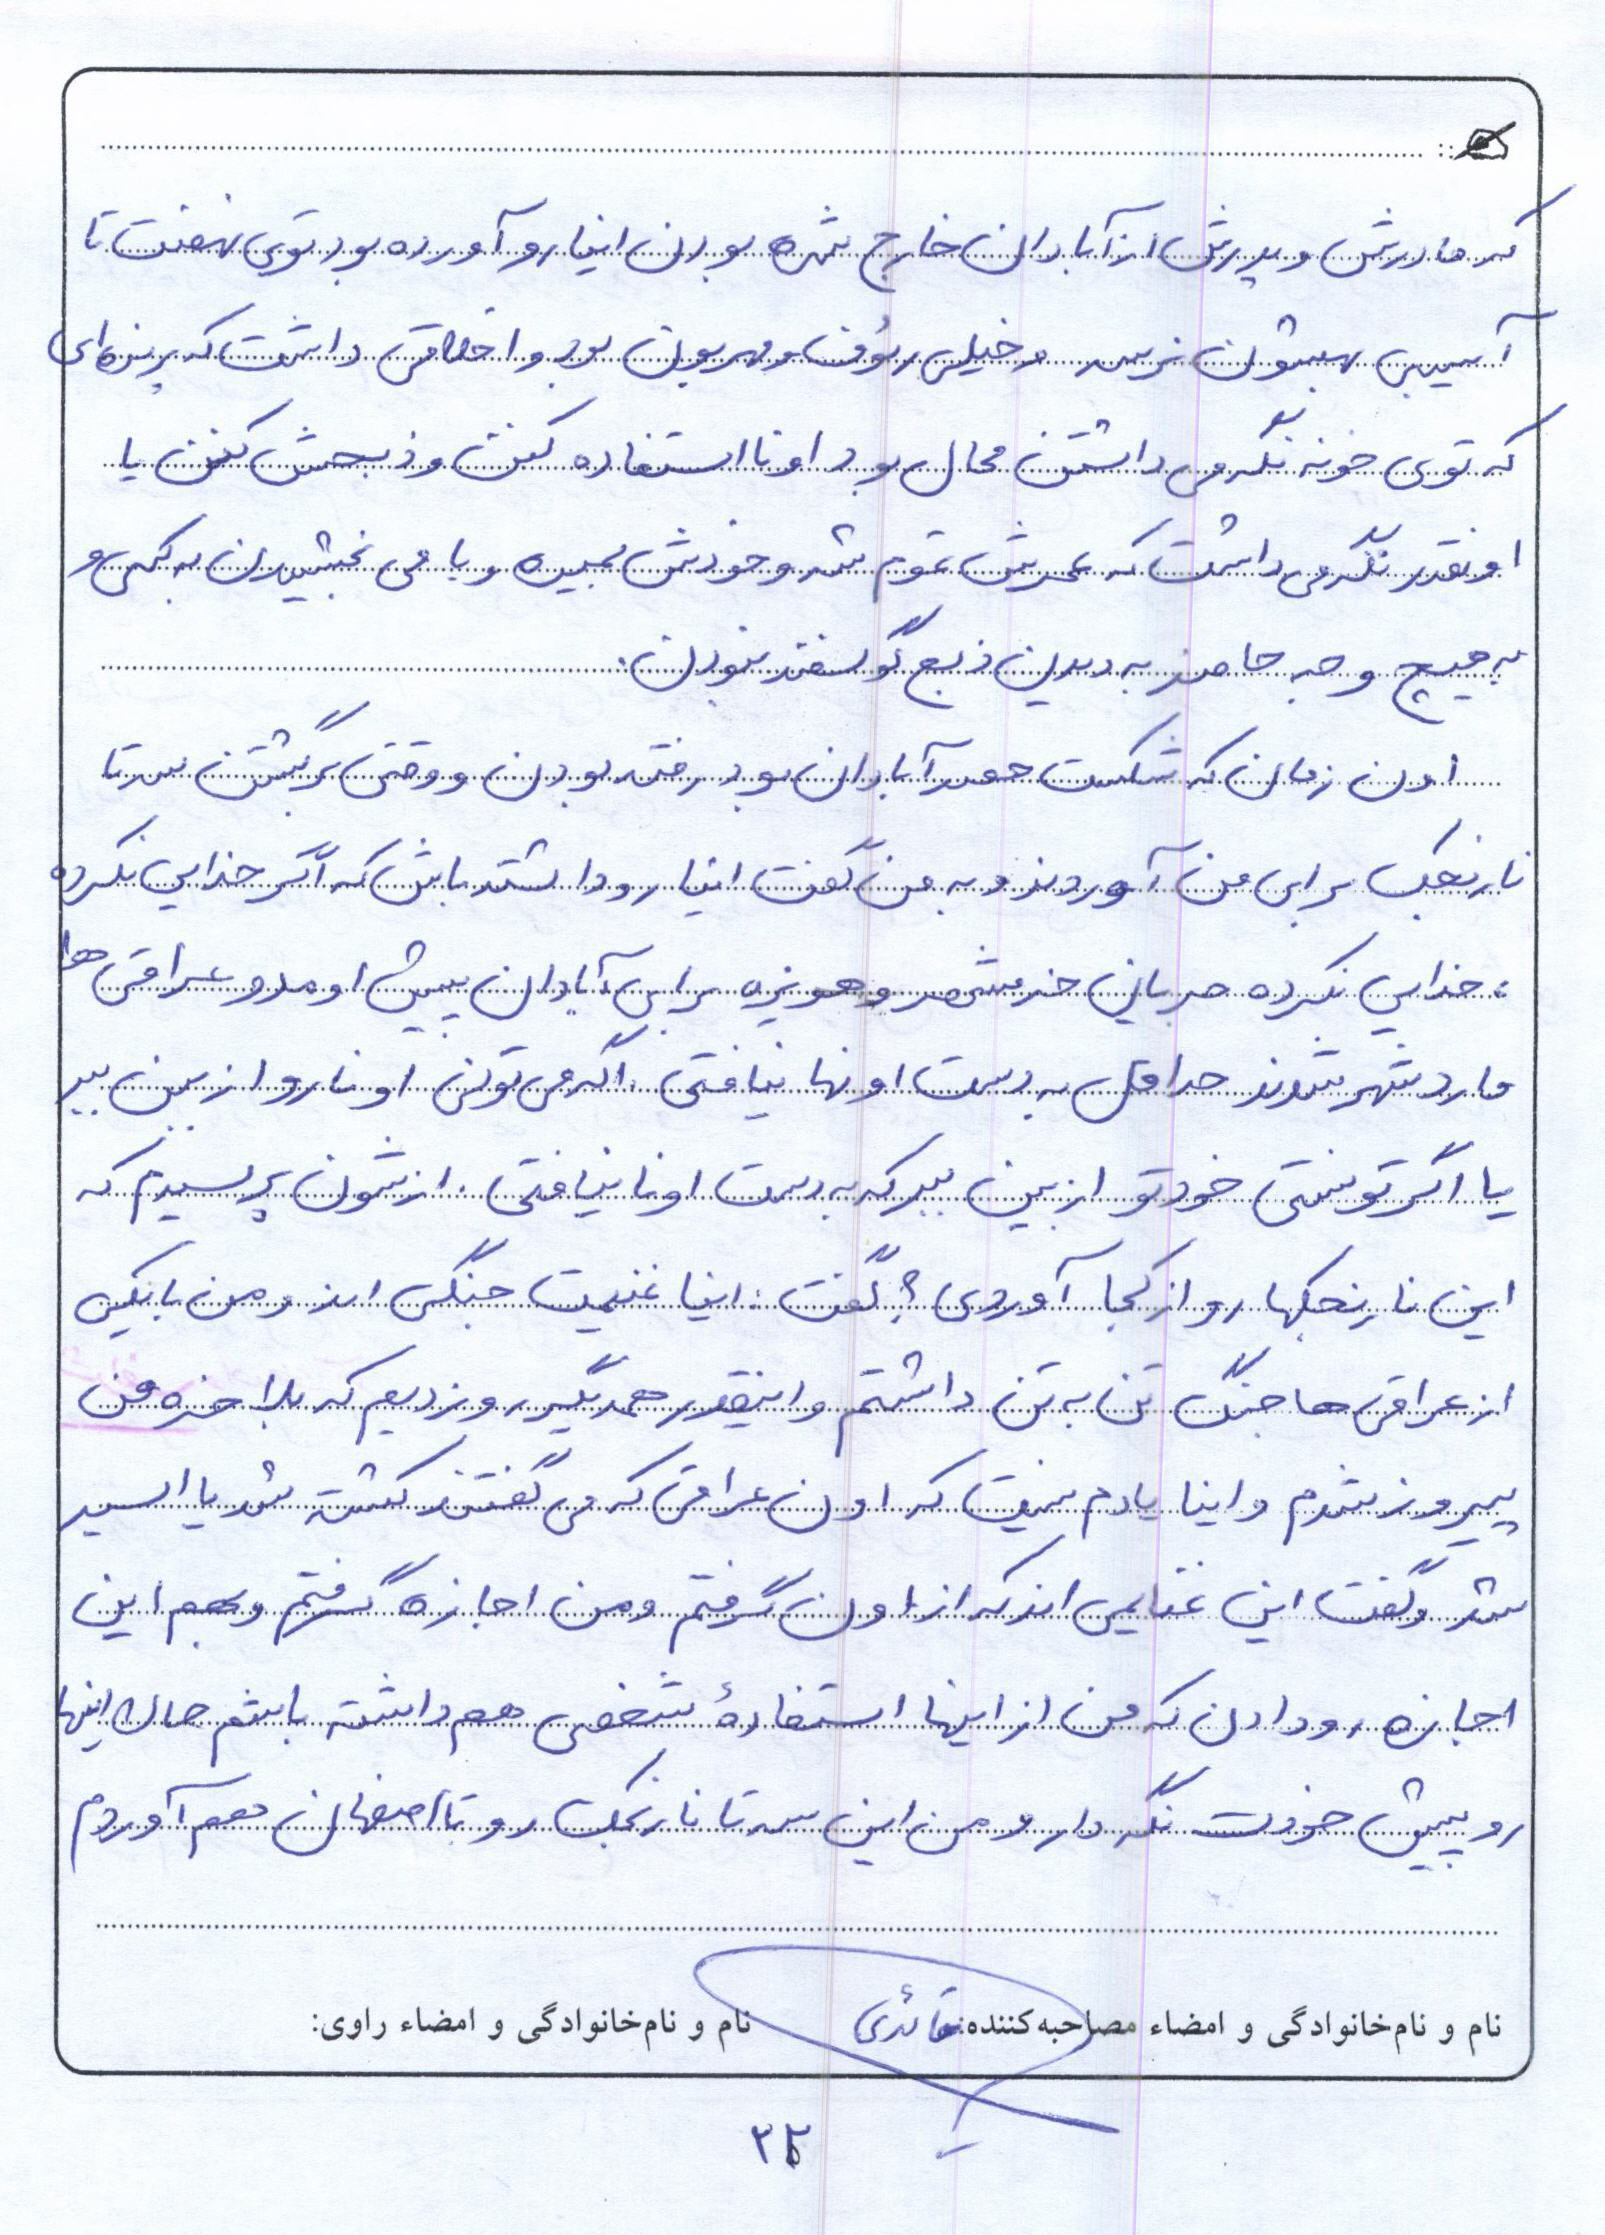 که مادرش و پدرش از آبادان خارج شده بودن اینا رو آورده بود توی نهضت تا
آسیبی بهشون نرسه و خیلی رئوف و مهربون بود و اخلاقی داشت که پرنده‌ای
که توی خونه نگه می داشتن محال بود اونا استفاده کنن و ذبحش کنن یا
اونقدر نگه می داشت که عمرش تموم شه و خودش بمیره و یا می بخشیدن به کسی و
به هیچ وجه حاضر به دیدن ذبح گوسفند نبودن.
اون زمان که شکست حصر آبادان بود رفته بودن و وقتی برگشتن سه تا
نارنجک برای من آوردند و به من گفت اینا رو داشته باش که اگر خدایی نکرده
، خدایی نکرده جریان خرمشهر و هویزه برای آبادان پیش اومد و عراقی ها
وارد شهر شدند حداقل به دست اونها نیافتی. اگه می تونی اونا رو از بین ببر
یا اگر تونستی خودتو از بین ببر که به دست اونا نیافتی. ازشون پرسیدم که
این نارنجکها رو از کجا آوردی؟ گفت: اینا غنیمت جنگی اند و من با یکی
از عراقی ها جنگ تن به تن داشتم و اینقدر همدیگر رو زدیم که بلاخره من
پیروز شدم و اینا یادم نیست که اون عراقی که می گفتند کشته شد یا اسیر
شد و گفت این غنایمی اند که از اون گرفتم و من اجازه گرفتم و بهم این
اجازه رو دادن که من از اینها استفادهٔ شخصی هم داشته باشم حالا اینها
رو پیش خودت نگه دار و من این سه تا نارنجک رو تا اصفهان هم آوردم
نام و نام‌خانوادگی و امضاء مصاحبه‌کننده: قائدی نام و نام‌خانوادگی و امضاء راوی: